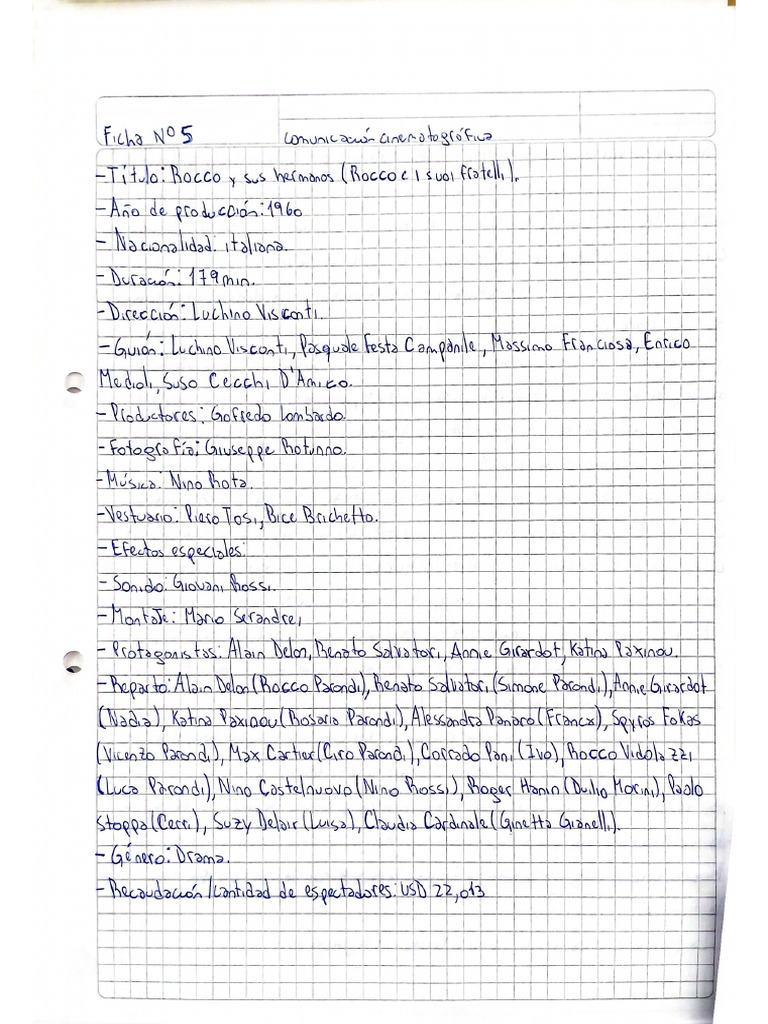 Ficha Nº 5
Comunicación cinematográfica
- Título: Rocco y sus hermanos (Rocco e i suoi fratelli).
- Año de producción: 1960
- Nacionalidad: italiana.
- Duración: 179 min.
- Dirección: Luchino Visconti.
- Guión: Luchino Visconti, Pasquale Festa Campanile, Massimo Franciosa, Enrico
Medioli, Suso Cecchi D'Amico.
- Productores: Gofredo Lombardo.
- Fotografía: Giuseppe Rotunno.
- Música: Nino Rota.
- Vestuario: Piero Tosi, Bice Brichetto.
- Efectos especiales:
- Sonido: Giovani Rossi.
- Montaje: Mario Serandrei
- Protagonistas: Alain Delon, Renato Salvatori, Annie Girardot, Katina Paxinou.
- Reparto: Alain Delon (Rocco Parondi), Renato Salvatori (Simone Parondi), Annie Girardot
(Nadia), Katina Paxinou (Rosaria Parondi), Alessandra Panaro (Franca), Spyros Fokas
(Vicenzo Parondi), Max Cartier (Ciro Parondi), Corrado Pani (Ivo), Rocco Vidolazzi
(Luca Parondi), Nino Castelnuovo (Nino Rossi), Roger Hanin (Duilio Morini), Paolo
Stoppa (Cerri), Suzy Delair (Luisa), Claudia Cardinale (Ginetta Gianelli).
- Género: Drama.
- Recaudación/Cantidad de espectadores: USD 22,013